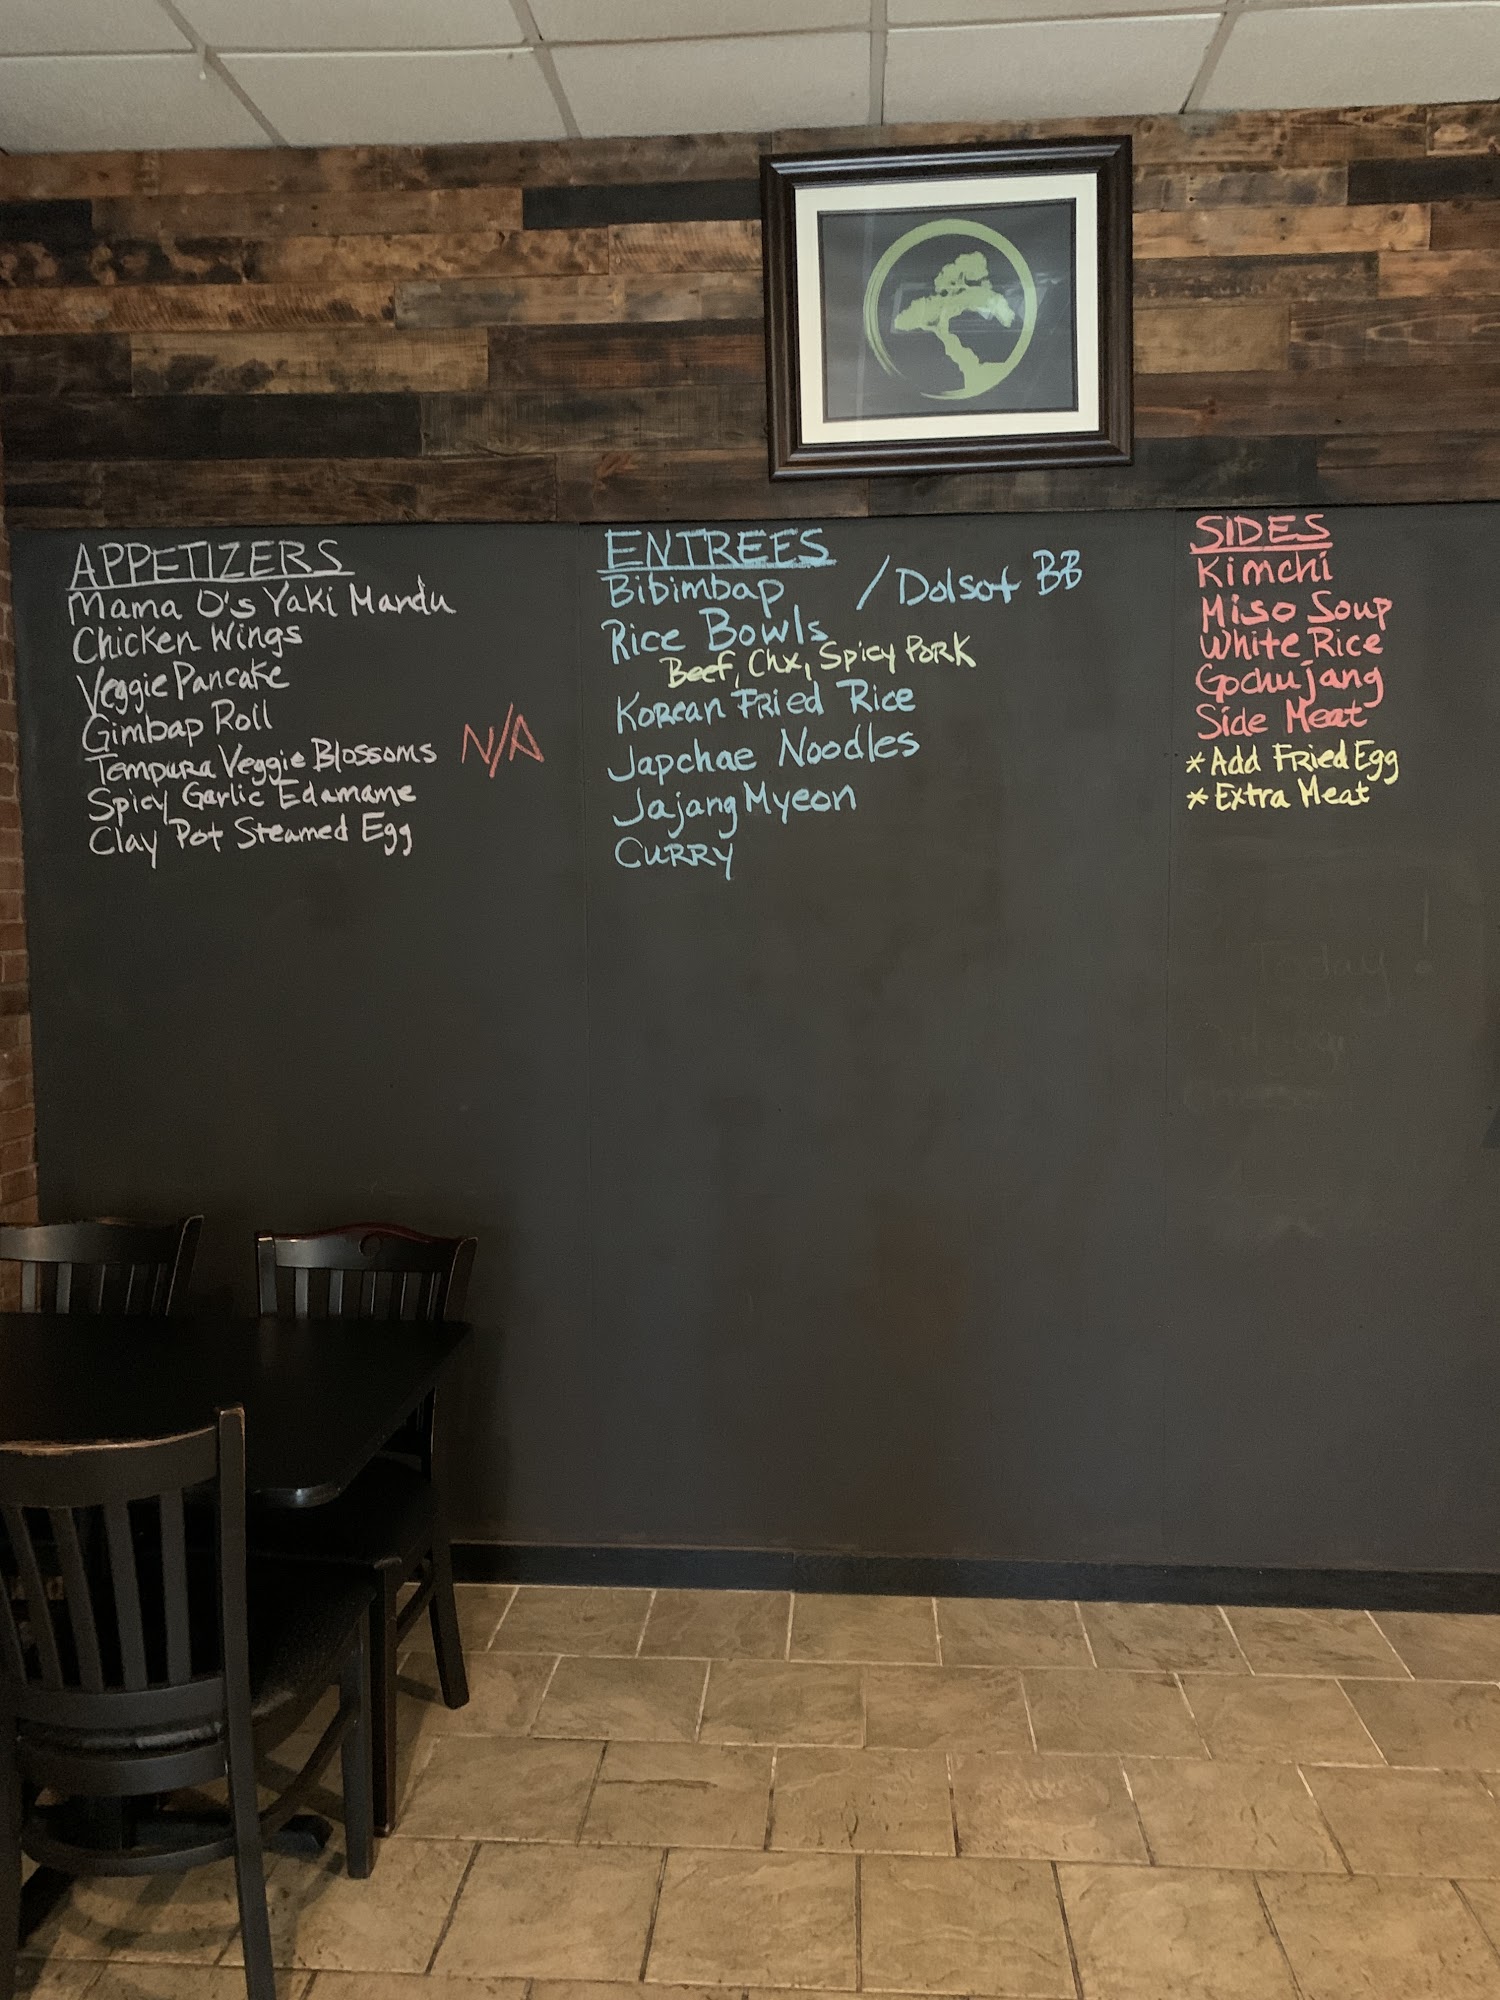 APPETIZERS
Mama O's Yaki Mandu
Chicken Wings
Veggie Pancake
Gimbap Roll
Tempura Veggie Blossoms N/A
Spicy Garlic Edamame
Clay Pot Steamed Egg
ENTREES
Bibimbap / Dolsot BB
Rice Bowls
Beef, Chx, Spicy Pork
Korean Fried Rice
Japchae Noodles
Jajang Myeon
Curry
SIDES
Kimchi
Miso Soup
White Rice
Gochujang
Side Meat
* Add Fried Egg
* Extra Meat
Today!